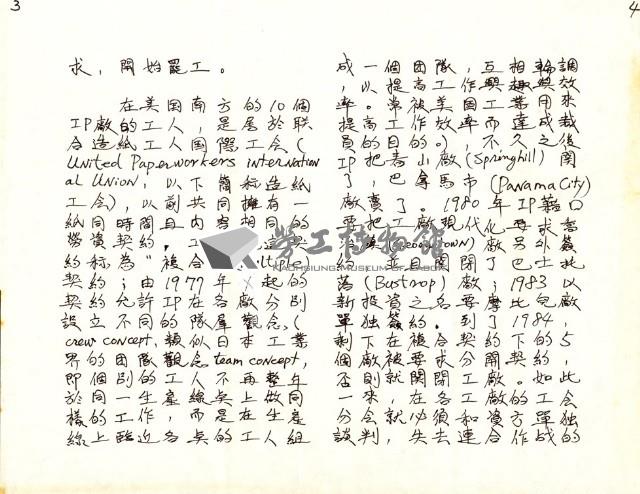 3
求，開始罷工。
在美国南方的10個
IP廠的工人，是屬於联
合造紙工人国際工会(
United Paperworkers internation
al Union，以下簡称造紙
工会)，以前共同擁有一
紙同時間且内容相同的
勞資契約，工
約称為"複合
契約；由1979年 起的
契約允許IP在各廠分別
設立不同的隊羣觀念(
crew concept，類似日本工業
界的团隊觀念team concept，
即個別的工人不再整年
於同一生產線点上做同
樣的工作，而是在生產
線上臨近各点的工人組
4
成一個团隊，互相輪調
，以提高工作興趣與效
率。常被美国工業用來
提高工作效率而達成裁
員的目的。)，不久之後
IP把春山廠(Springhill)関
了，巴拿馬市(Panama City)
廠賣了。1980年IP藉口
要把工廠現代化要求喬
廠另外簽
約，並且関閉了巴士托
蕩(Bustrop)廠；1983以
新投資之名要摩比包廠
單独簽約。到了1984，
剩下在複合契約下的5
個廠被要求分開契約，
否則就関閉工廠。如此
一來，在各工廠的工会
分会就必須和資方單独
談判，失去連合作战的
勞工博物館
KAOHSIUNG MUSEUM OF LABOR